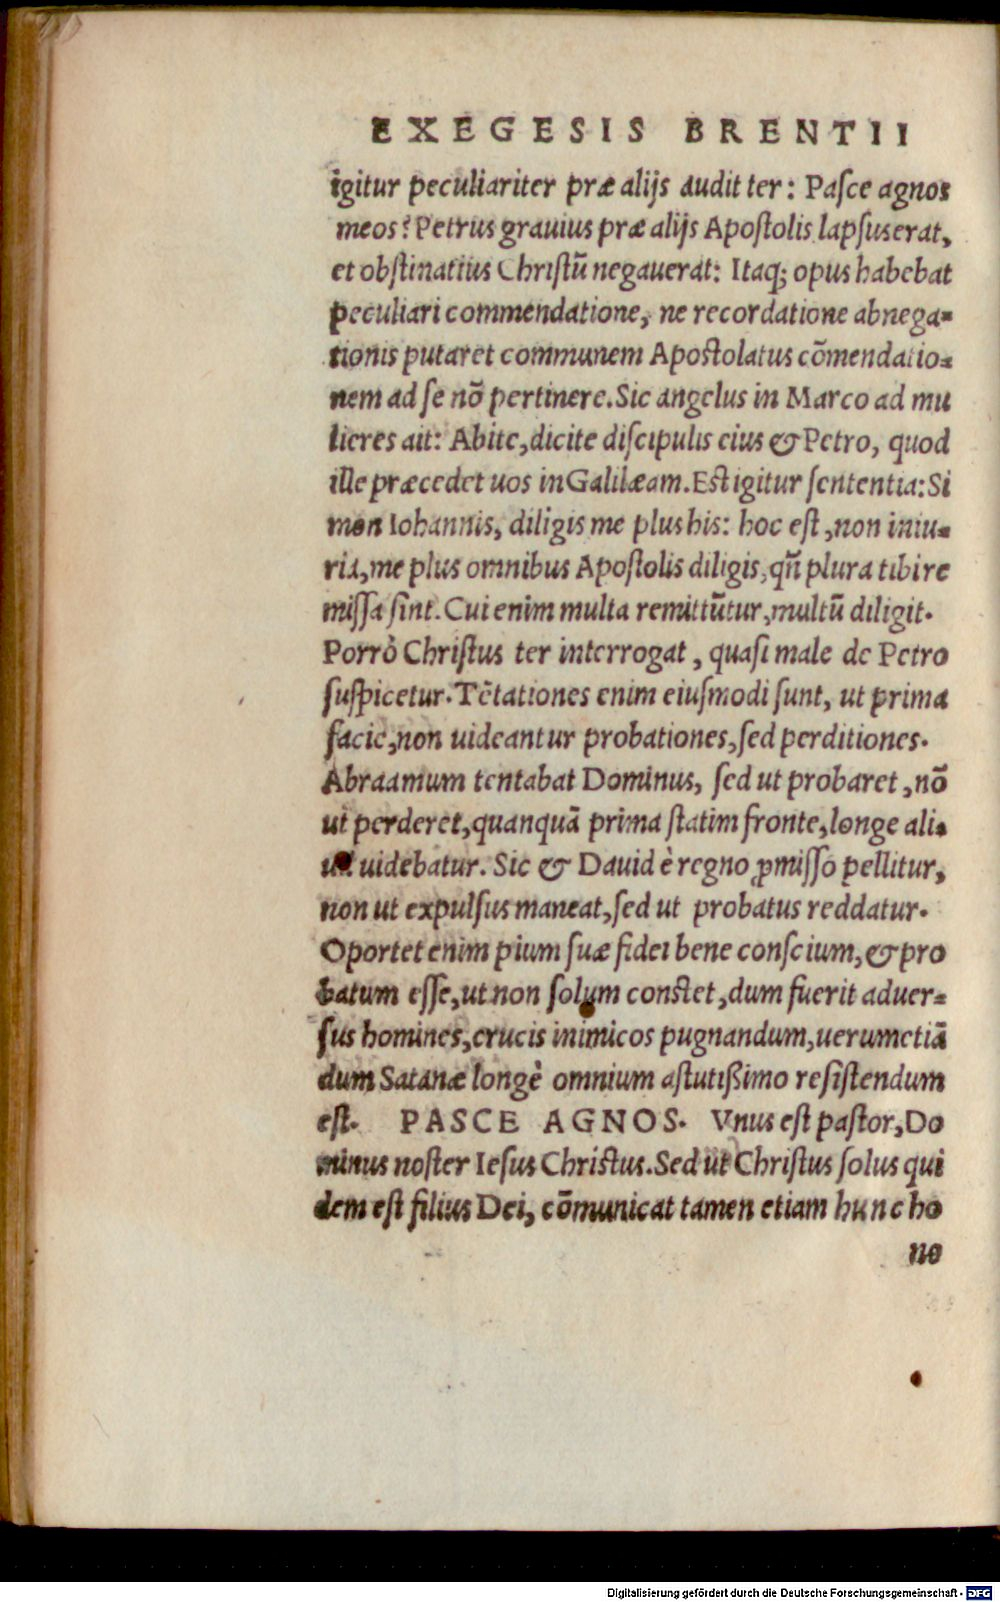 EXEGESIS BRENTII
igitur peculiariter præ alijs audit ter: Pasce agnos
meos? Petrus grauius præ alijs Apostolis lapsus erat,
et obstinatius Christū negauerat: Itaq; opus habebat
peculiari commendatione, ne recordatione abnega=
tionis putaret communem Apostolatus cōmendatio=
nem ad se nō pertinere. Sic angelus in Marco ad mu
lieres ait: Abite, dicite discipulis eius & Petro, quod
ille præcedet uos in Galilæam. Est igitur sententia: Si
mon Iohannis, diligis me plus his: hoc est, non iniu=
ria, me plus omnibus Apostolis diligis, qñ plura tibi re
missa sint. Cui enim multa remittūtur, multū diligit.
Porrò Christus ter interrogat, quasi male de Petro
suspicetur. Tētationes enim eiusmodi sunt, ut prima
facie, non uideantur probationes, sed perditiones.
Abraamum tentabat Dominus, sed ut probaret, nō
ut perderet, quanquā prima statim fronte, longe ali=
uidebatur. Sic & David è regno ꝓmisso pellitur,
non ut expulsus maneat, sed ut probatus reddatur.
Oportet enim pium suæ fidei bene conscium, & pro
batum esse, ut non solum constet, dum fuerit aduer=
sus homines, crucis inimicos pugnandum, uerumetiā
dum Satanæ longè omnium astutißimo resistendum
est. PASCE AGNOS. Vnus est pastor, Do
minus noster Iesus Christus. Sed ut Christus solus qui
dem est filius Dei, cōmunicat tamen etiam hunc ho
no
Digitalisierung gefördert durch die Deutsche Forschungsgemeinschaft - DFG